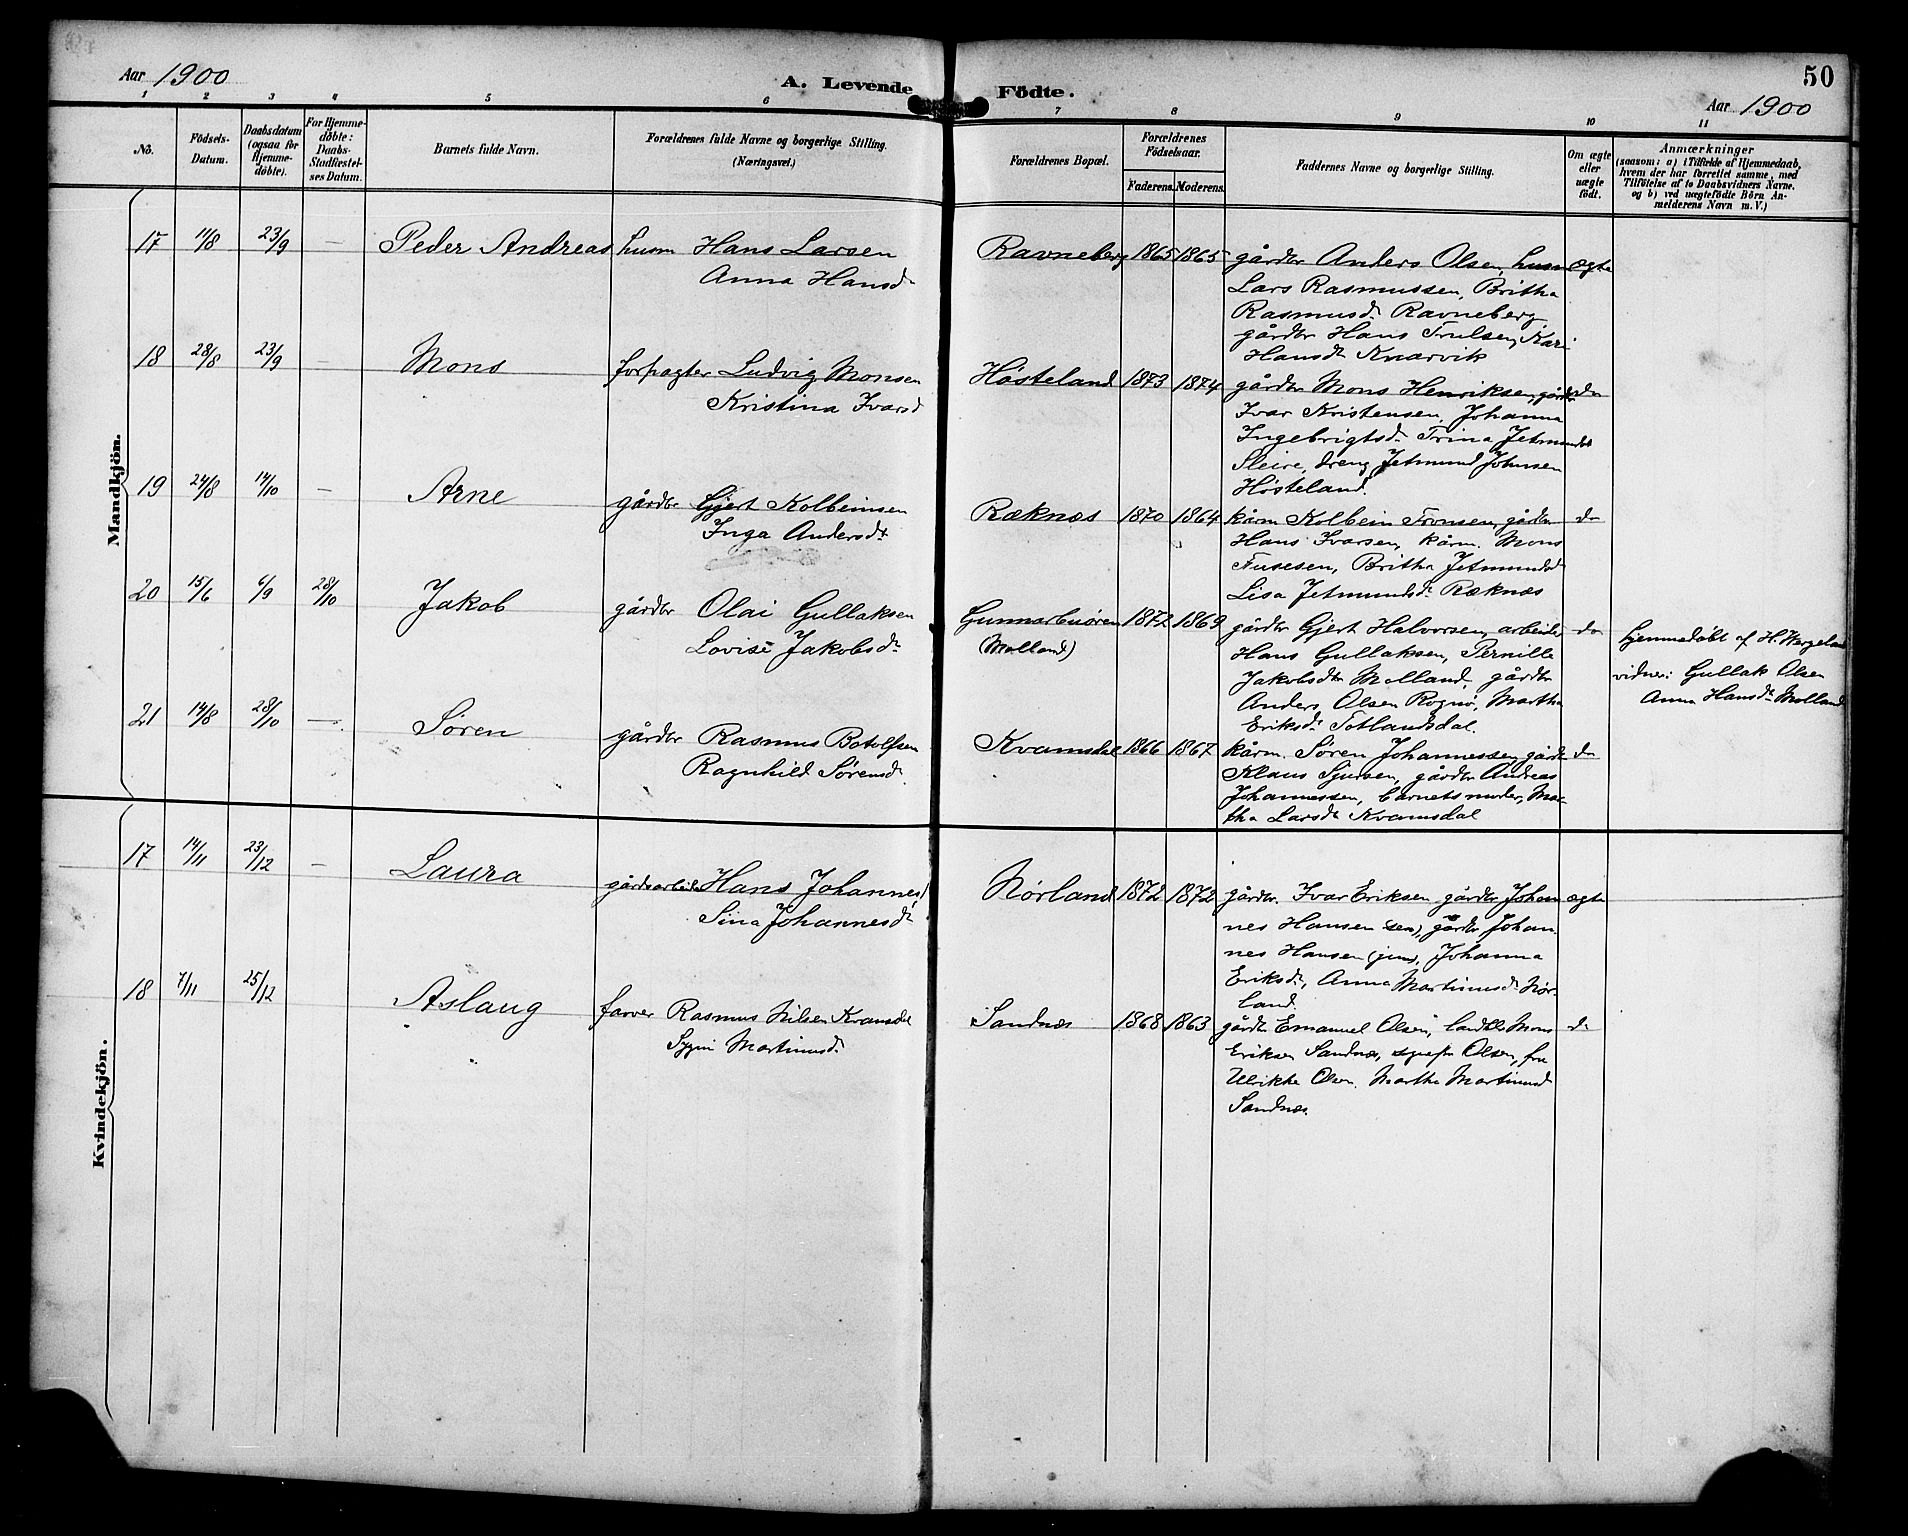 Aar 1900
A. Levende Födte.
50
Aar 1900
1 2 3 4 5 6 7 8 9 10 11
No.
Födsels-Datum.
Daabsdatum (ogsaa for Hjemme-döbte).
For Hjemme-döbte: Daabs-Stadfæstel-ses Datum.
Barnets fulde Navn.
Forældrenes fulde Navne og borgerlige Stilling. (Næringsvei.)
Forældrenes Bopæl.
Forældrenes Födselsaar.
Faderens. Moderens.
Faddernes Navne og borgerlige Stilling.
Om ægte eller uægte födt.
Anmærkninger
(saasom: a) i Tilfælde af Hjemmedaab,
hvem der har forrettet samme, med
Tilföielse af to Daabsvidners Navne,
og b) ved uægtefödte Börn An-
melderens Navn m. V.)
Mandkjön.
17 11/8 23/9 — Peder Andreas husm Hans Larsen
Anna Hansd
Ravneberg 1865 1865 gårdbr Anders Olsen, husm ægte
Lars Rasmussen, Britha
Rasmusd. Ravneberg
gårdbr Hans Trulsen, Kari
Hansdt Knarvik
18 28/8 23/9 — Mons forpagter Ludvig Monsen
Kristina Ivarsd
Hösteland 1873 1874 gårdbr Mons Henriksen, gårdbr do
Ivar Kristensen, Johanna
Ingebrigtsd. Trina Jetmundsd
Sleire, dreng Jetmund Johnsen
Hösteland.
19 24/8 14/10 — Arne gårdbr Gjert Kolbeinsen
Inga Andersdt
Ræknes 1870 1864 kårm Kolbein Tronsen, gårdbr do
Hans Ivarsen, kårm. Mons
Fusesen, Britha Jetmundsd
Lisa Jetmundsd. Ræknæs
20 15/6 6/9 28/10 Jakob gårdbr Olai Gullaksen
Lovise Jakobsd.
Gunnarbuören
(Molland)
1872 1869 gårdbr Gjert Halvorsen, arbeider do
Hans Gullaksen, Pernille
Jakobsdtr Molland, gårdbr
Anders Olsen Rognö, Martha
Eriksd. Totlandsdal.
hjemmedöbt af H. Wergeland
vidner: Gullak Olsen
Anna Hansd. Molland
21 14/8 28/10 — Sören gårdbr Rasmus Botolfsen
Ragnhild Sörensd.
Kvamsdal 1866 1867 kårm. Sören Johannessen, gårdb do
Klaus Sjursen, gårdbr Andreas
Johannessen, barnets moder, Mar-
tha Larsdt Kvamsdal
Kvindekjön.
17 14/11 23/12 — Laura gårdsarbeid Hans Johannes
Sina Johannesd
Nörland 1872 1872 gårdbr. Ivar Eriksen gårdbr Johan ægte
nes Hansen (sen), gårdbr, Johan
nes Hansen (jun), Johanna
Eriksd., Anna Martinusd. Nör-
land.
18 7/11 25/12 Aslaug farver Rasmus Nilsen Kvamsdal
Martinusd.
Sandnæs 1868 1863 gårdb. Emanuel Olsen, Mons d.
Eriksen Sandnæs, Olsen, fru
Ulrikke Olsen, Martha Martinusd
Sandnæs.